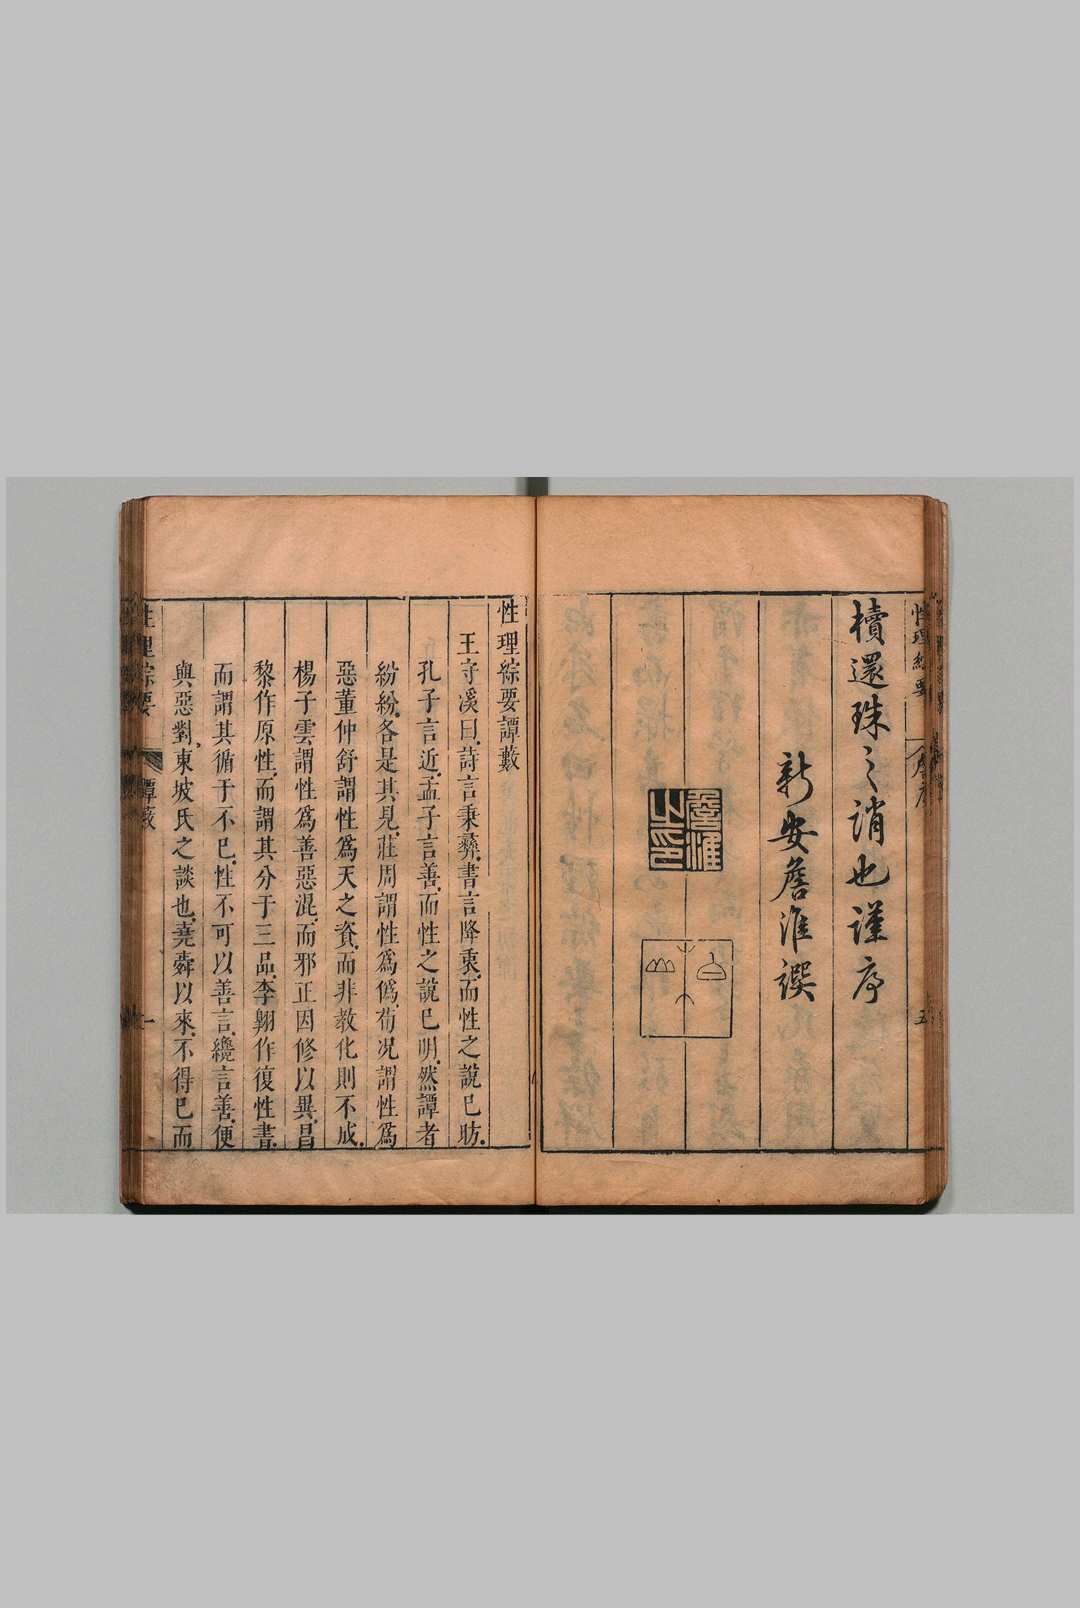 性理綜要
序
五
櫝還珠之誚也謹序
新安詹淮撰
詹淮之印
性理綜要譚藪
王守溪曰詩言秉彝書言降衷而性之說已昉
孔子言近孟子言善而性之說已明然譚者
紛紛各是其見莊周謂性爲僞荀況謂性爲
惡董仲舒謂性爲天之資而非教化則不成
楊子雲謂性爲善惡混而邪正因修以異昌
黎作原性而謂其分于三品李翺作復性書
而謂其循于不已性不可以善言纔言善便
與惡對東坡氏之談也堯舜以來不得已而
性理綜要
譚藪
一